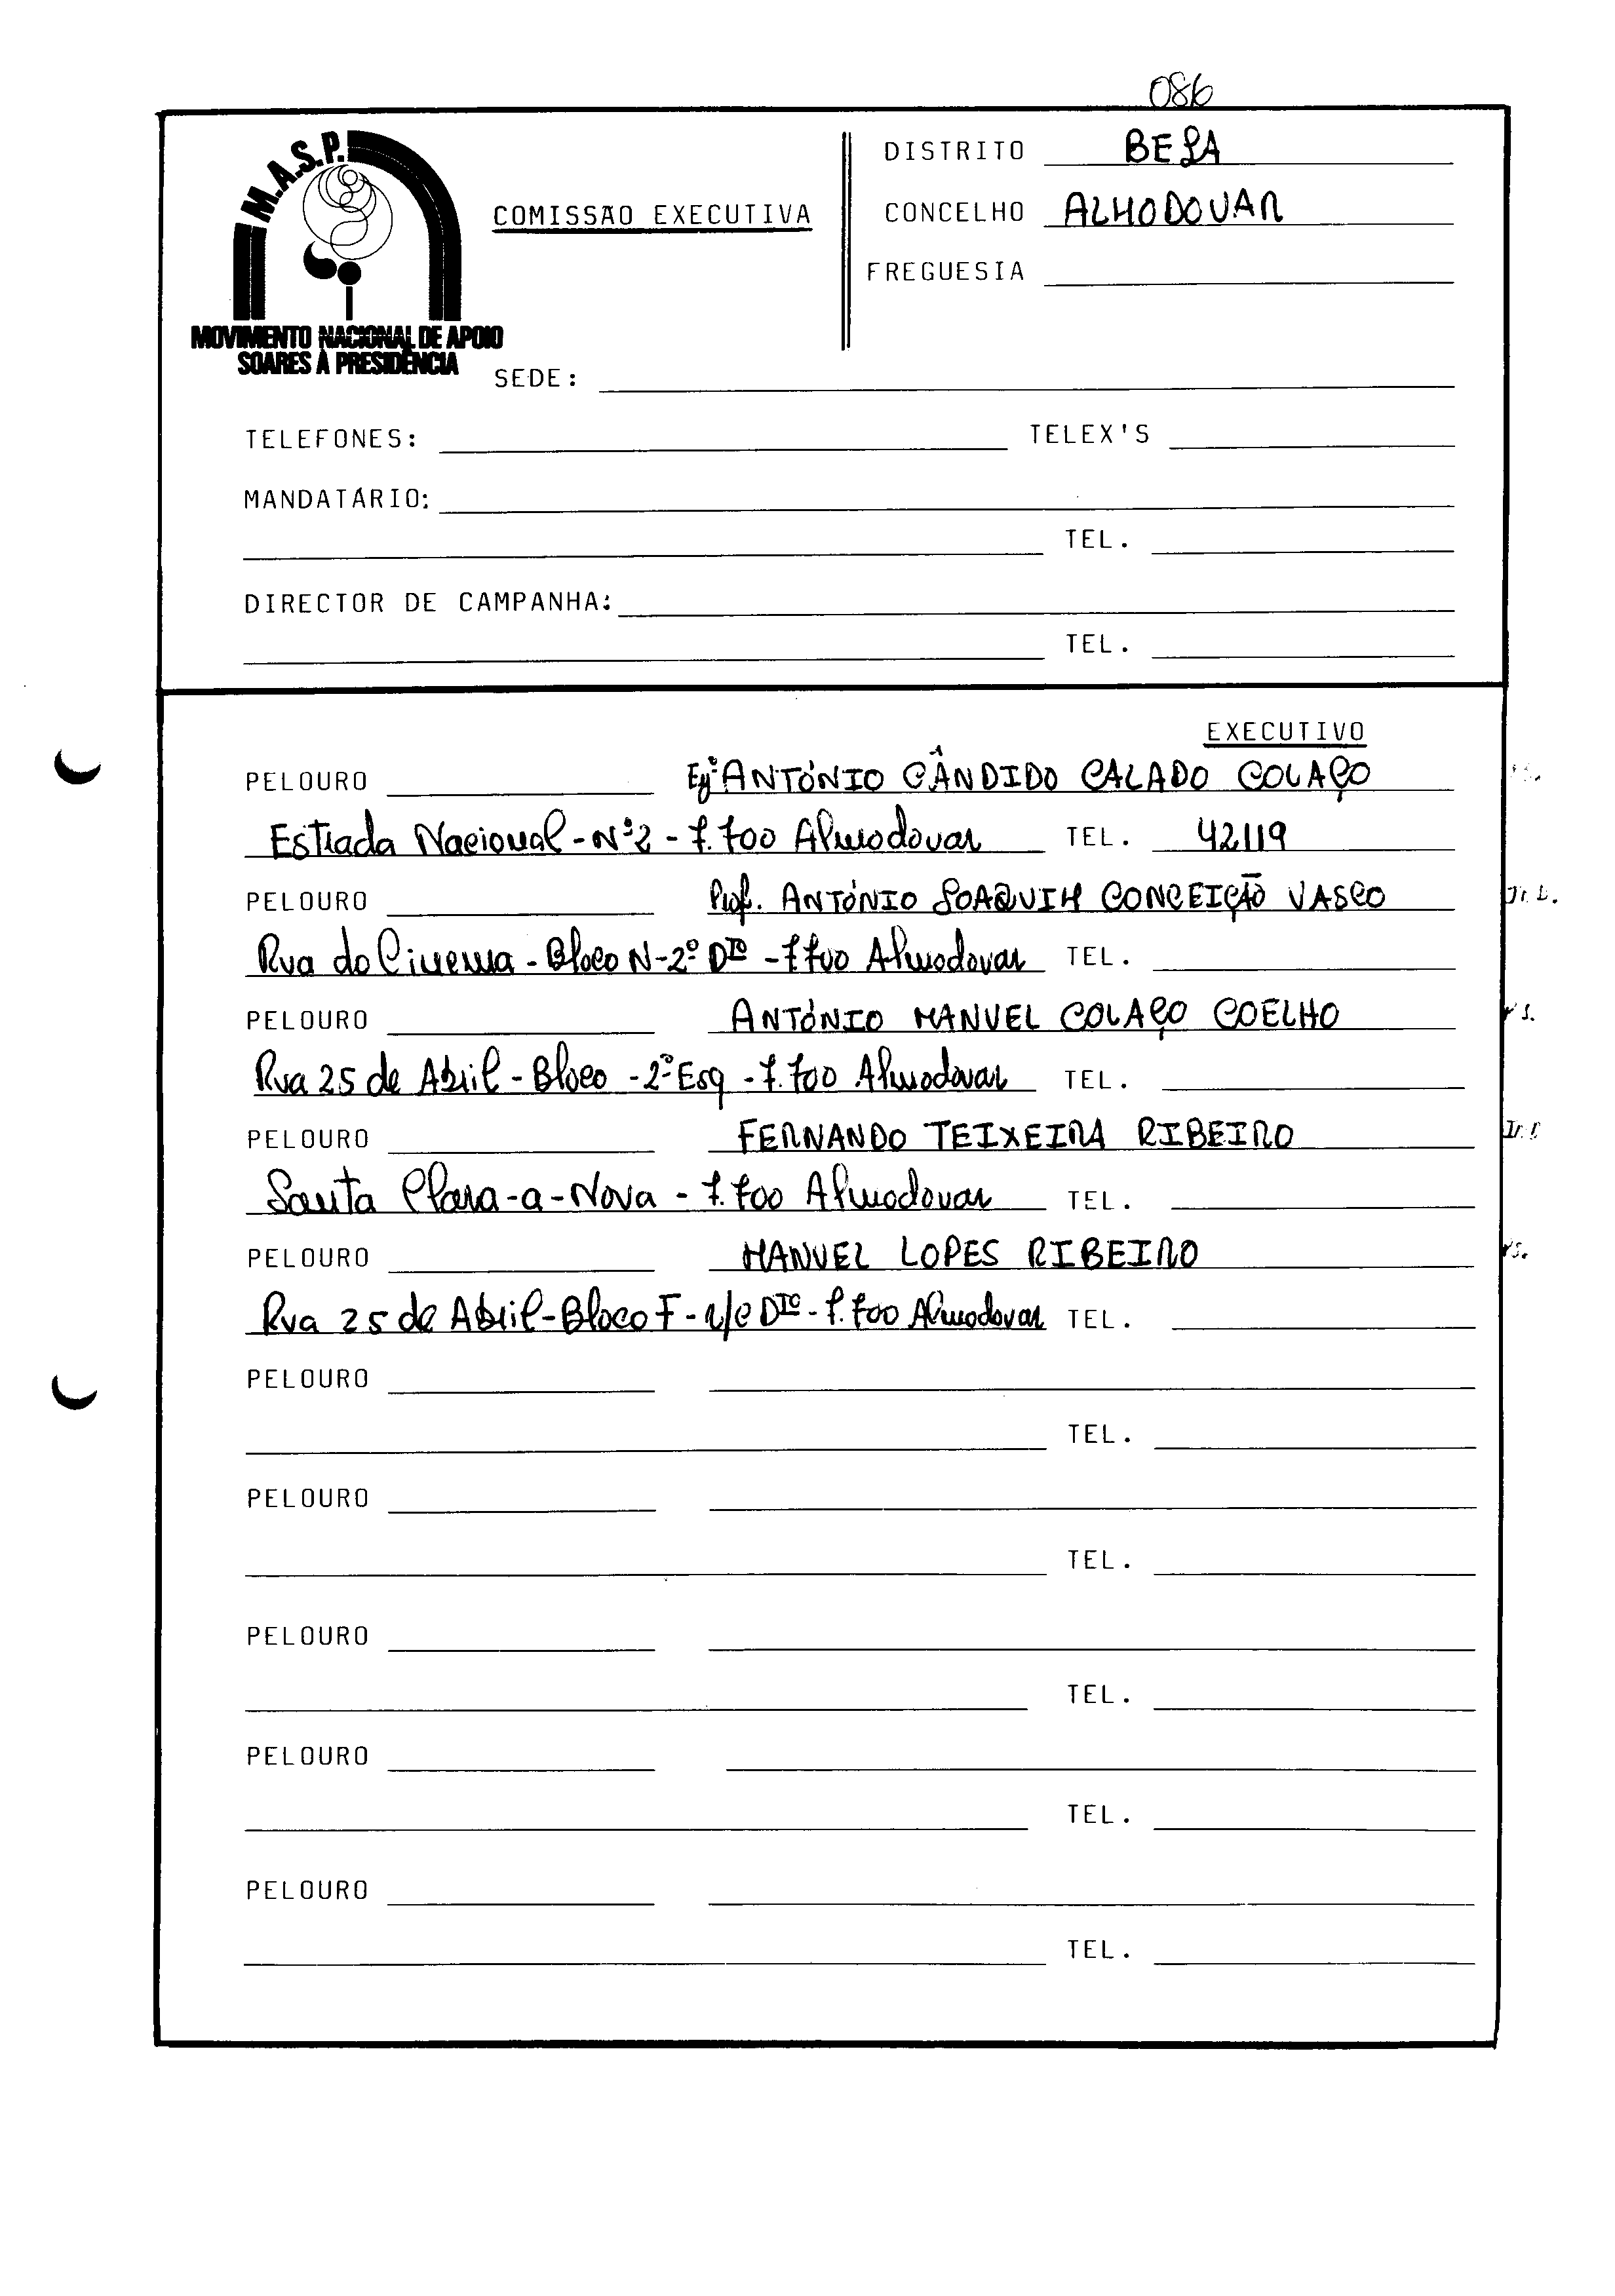 086
M.A.S.P.
MOVIMENTO NACIONAL DE APOIO
SOARES À PRESIDÊNCIA
COMISSÃO EXECUTIVA
DISTRITO BEJA
CONCELHO ALMODOVAR
FREGUESIA
SEDE:
TELEFONES: TELEX'S
MANDATÁRIO:
TEL.
DIRECTOR DE CAMPANHA:
TEL.
EXECUTIVO
PELOURO Engº ANTÓNIO CÂNDIDO CALADO COLAÇO
Estrada Nacional - Nº2 - 7.700 Almodovar TEL. 42119
PELOURO Prof. ANTÓNIO JOAQUIM CONCEIÇÃO VASCO
Rua do Cinema - Bloco N - 2º DTO - 7700 Almodovar TEL.
PELOURO ANTÓNIO MANUEL COLAÇO COELHO
Rua 25 de Abril - Bloco - 2º Esq - 7.700 Almodovar TEL.
PELOURO FERNANDO TEIXEIRA RIBEIRO
Santa Clara-a-Nova - 7.700 Almodovar TEL.
PELOURO MANUEL LOPES RIBEIRO
Rua 25 de Abril - Bloco F - r/c DTO - 7.700 Almodovar TEL.
PELOURO
TEL.
PELOURO
TEL.
PELOURO
TEL.
PELOURO
TEL.
PELOURO
TEL.